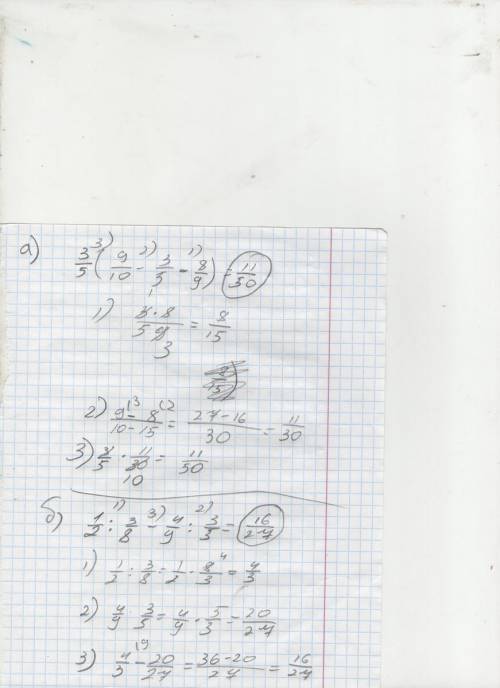 а) 3/5 ³⁾ ( 9/10 -²⁾ 3/5 ·¹⁾ 8/9 ) = 11/50
1) 3·8/5·9 = 8/15
1 3
2) 9/10 ⁽³ - 8/15 ⁽² = 27-16/30 = 11/30
3) 3/5 · 11/30 = 11/50
10
б) 1/2 :¹⁾ 3/8 -³⁾ 4/9 :²⁾ 3/5 = 16/27
1) 1/2 : 3/8 = 1/2 · 8/3 ⁴ = 4/3
2) 4/9 : 3/5 = 4/9 · 5/3 = 20/27
3) 4/3 ⁽⁹ - 20/27 = 36-20/27 = 16/27